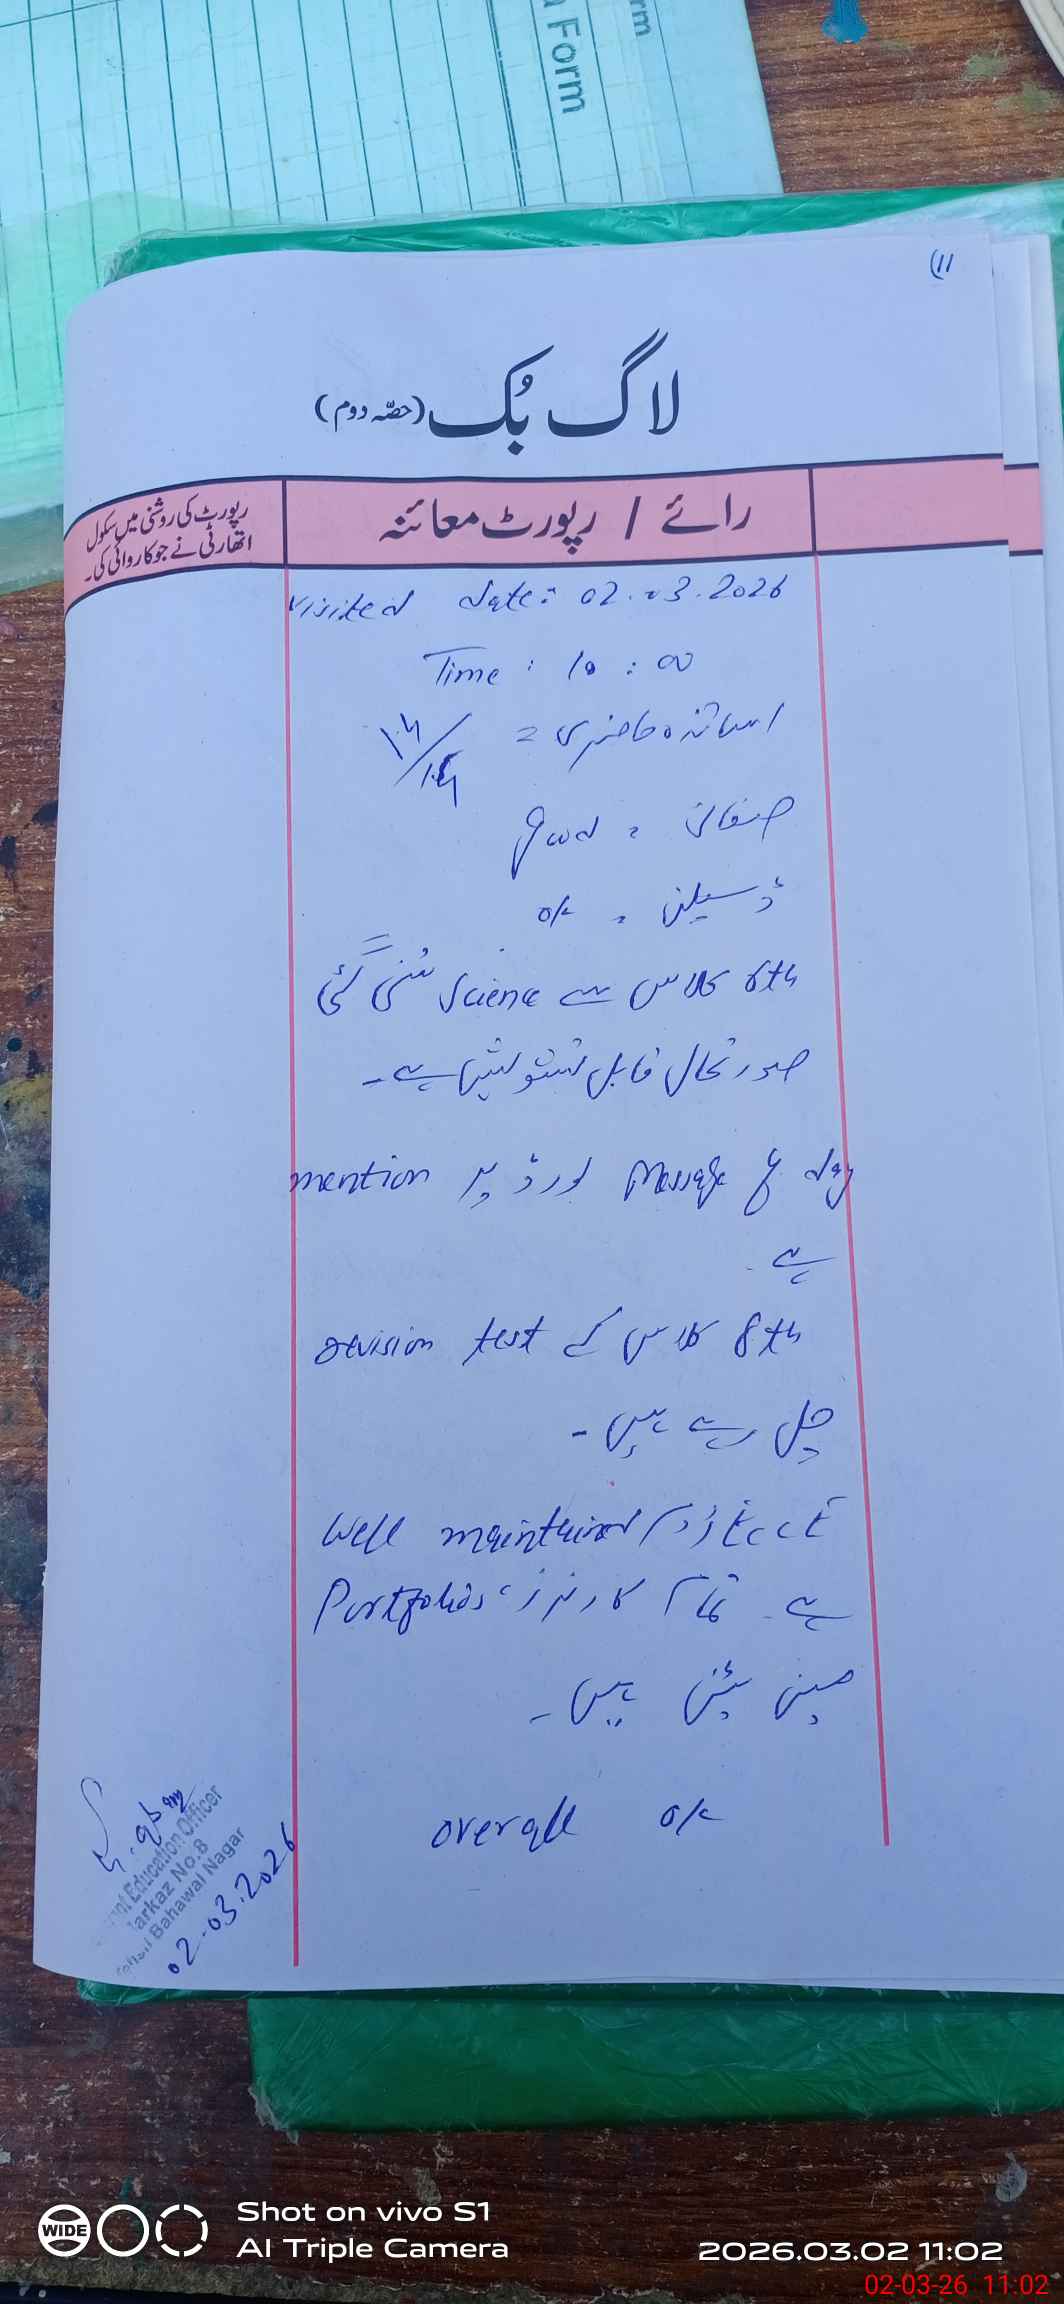 rm
a Form
(11
لاگ بُک (حصّہ دوم)
رائے / رپورٹ معائنہ
رپورٹ کی روشنی میں سکول
اتھارٹی نے جو کاروائی کی۔
Visited date: 02.03.2026
Time : 10 : 00
اساتذہ حاضری =
صفائی = good
ڈسپلن = ok
6th کلاس سے Science سُنی گئی
صورتحال قابل تشویش ہے۔
Message of day بورڈ پر mention
ہے۔
8th کلاس کے test revision
چل رہے ہیں۔
ECCE روم well maintained
ہے۔ تمام کارنرز، Portfolios
مینٹین ہیں۔
overall ok
Education Officer
Markaz No.8
Bahawal Nagar
02.03.2026
WIDE
Shot on vivo S1
AI Triple Camera
2026.03.02 11:02
02-03-26 11:02